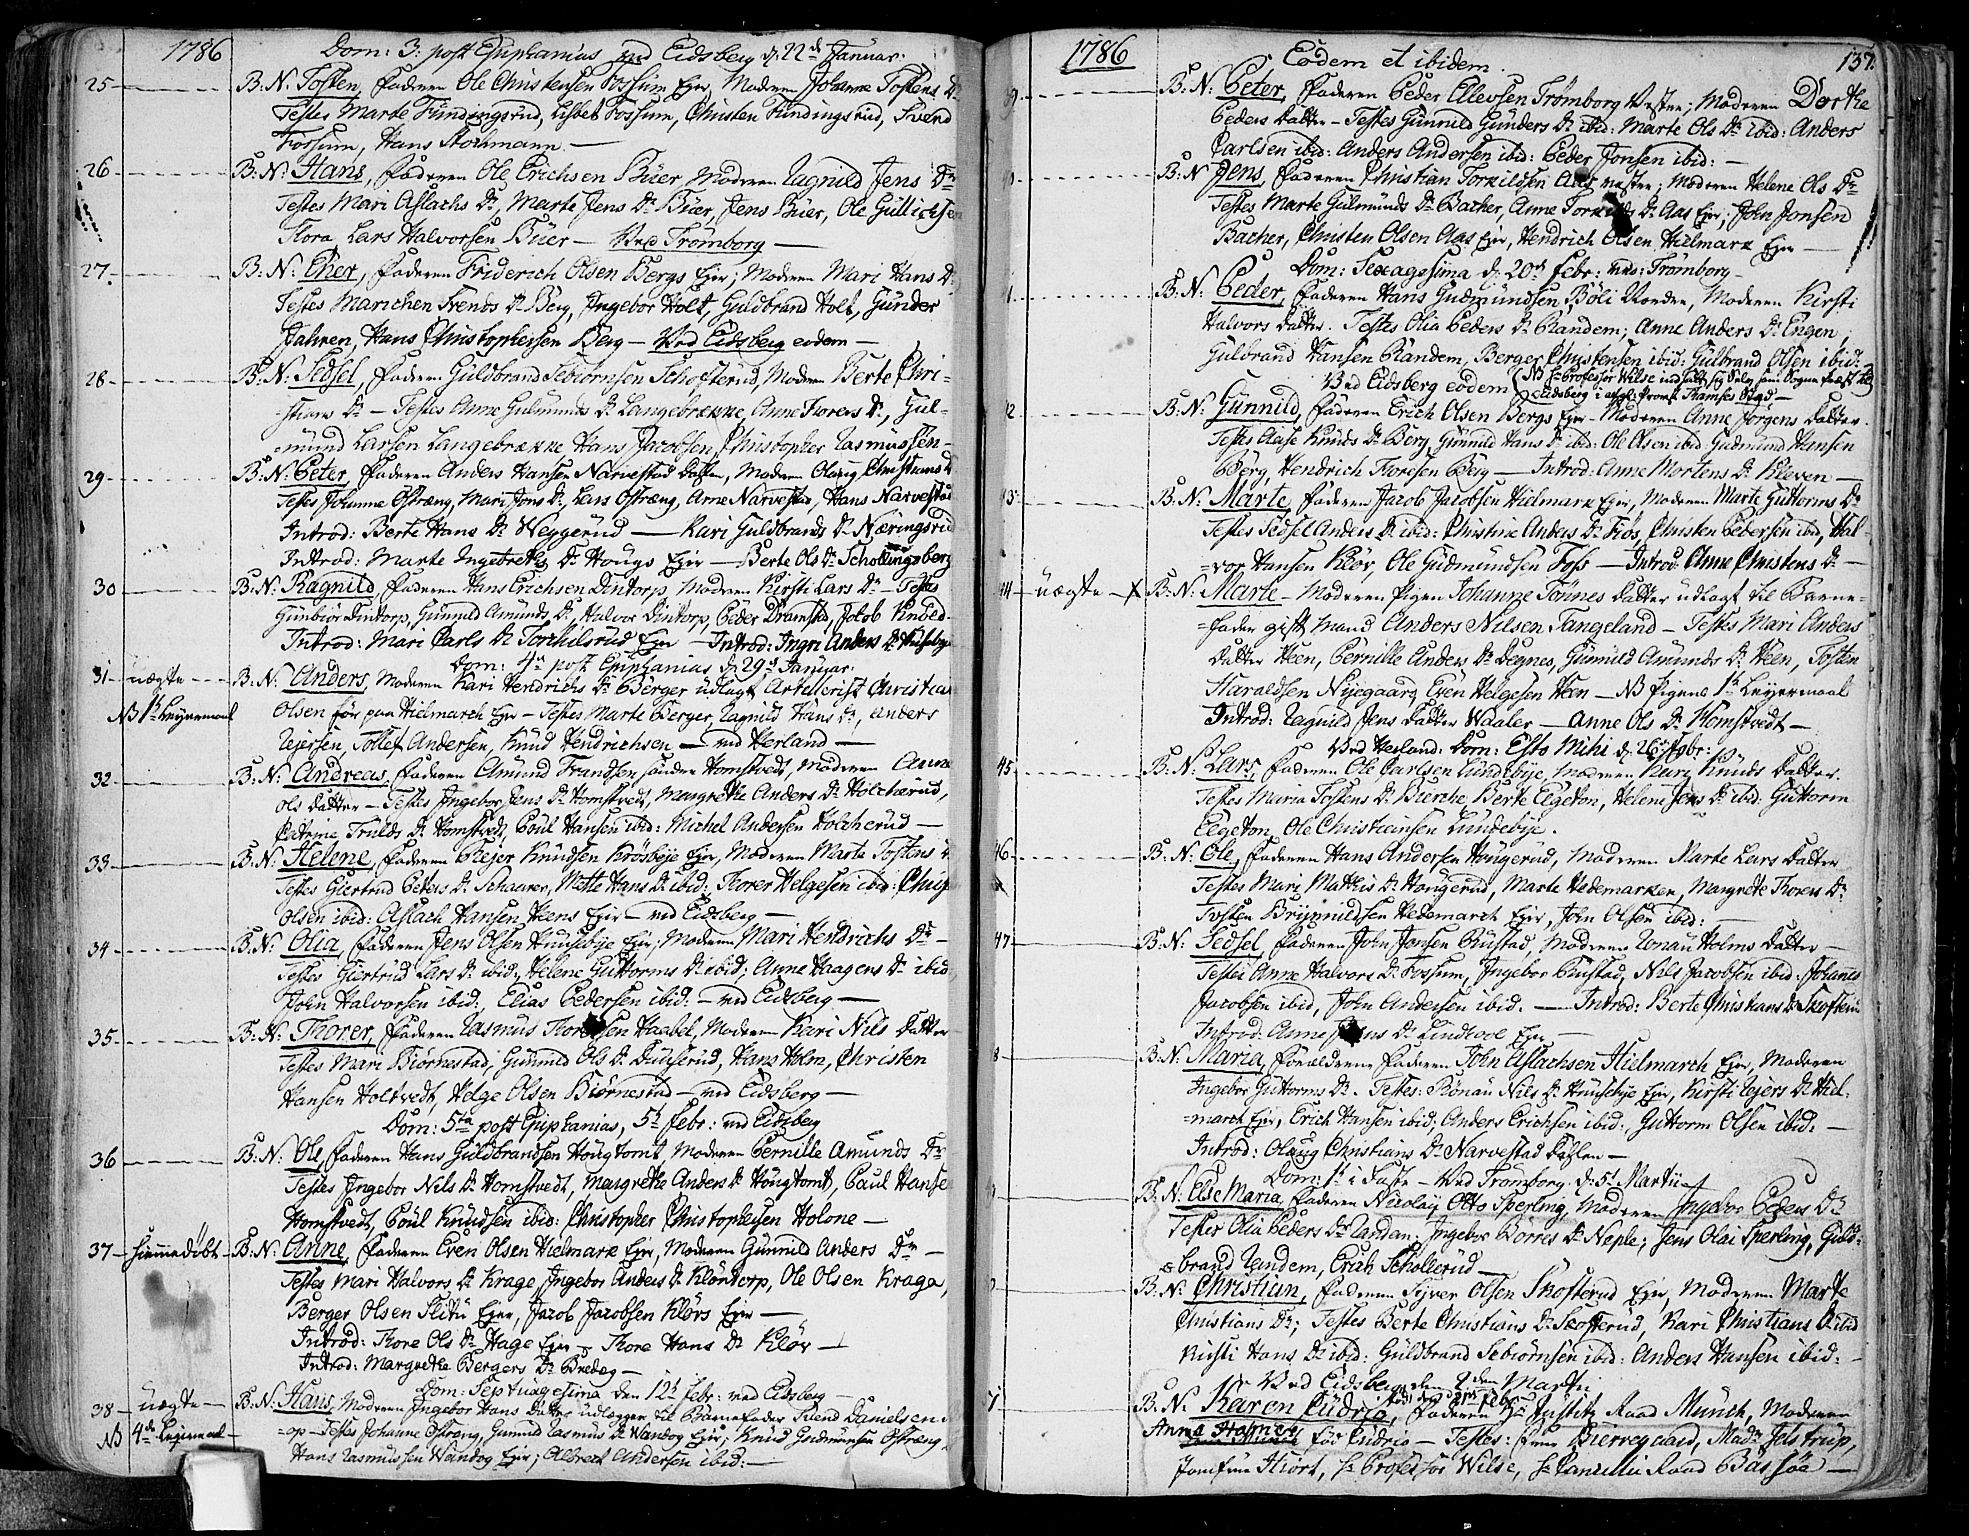 1786
Dom: 3: post Epiphanias ved Eidsberg d. 22de Januar:
25 B: N: Tosten, Faderen Ole Christensen Fossum Ejer, Moderen Johanne Tostens Dr
Testes Marte Kindingsrud, Lisbet Fossum, Christen Kindingsrud, Svend
Fossum, Hans Stochmann. —
26 B: N: Hans, Faderen Ole Erichsen Büer Moderen Ragnild Jens Dr
Testes Mari Aslachs Dr, Marte Jens Dr Büer, Jens Büer, Ole Gullichsen
Flora Lars Halvorsen Büer — Ved Trømborg —
27. B: N: Eher, Faderen Friderich Olsen Bergs Ejer; Moderen Mari Hans Dr
Testes Marichen Svends Dr Berg, Ingebor Holt, Guldbrand Holt, Gunder
Jahren, Hans Christophersen Berg — Ved Eidsberg eodem —
28 B: N: Sedsel, Faderen Guldbrand Sebiørnsen Schofterud, Moderen Berte Chri-
stians Dr — Testes Anne Gulmunds Dr Langebrekke, Anne Torers Dr, Gul-
mund Larsen Langebrekke Hans Jacobsen, Christopher Rasmussen —
29 B: N: Peter, Faderen Anders Hansen Narvestad Dahlen, Moderen Olaug Christians D
Testes Johanne Ostræng, Mari Jons Dr, Lars Ostræng, Arne Narvestad, Hans Narvestad
Introd: Berte Hans Dr Weggerud — Kari Guldbrands Dr Næringsrud
Introd: Marte Ingebreths Dr Hougs Ejer — Berte Ols Dr Schollingsberg
30 B: N: Ragnild, Faderen Hans Erichsen Dintorp, Moderen Kirsti Lars Dr — Testes
Gunbiør Dintorp, Gunnild Amunds Dr, Halvor Dintorp, Peder Dramstad, Jolob
Introd: Mari Carls Dr Torchilsrud Ejer — Introd: Ingri Anders Dr
Dom: 4ta post Epiphanias d. 29de Januar:
31 uægte B: N: Anders, Moderen Kari Hendrichs Dr Berger udlagt Artellerist Christian
NB 1te Leyermaal Olsen før paa Hielmarch Ejer — Testes Marte Berger, Ragnild Hans Dr, Anders
Rejersen, Tollef Andersen, Knud Hendrichsen — ved Herland —
32 B: N: Andreas, Faderen Amund Frandsen søndre Homstvedt, Moderen Anne
Ols Datter — Testes Ingebor Jens Dr Homstvedt, Margrethe Anders Dr Holcherud,
Catrine Truls Dr Homstvedt, Poul Hansen ibid: Michel Andersen Holcherud —
33 B: N: Helene, Faderen Brejer Knudsen Krosbøje Ejer, Moderen Marte Tostens
Testes Giertrud Peders Dr Schaarer, Mette Hans Dr ibid: Torer Helgesen ibid: Christ
Olsen ibid: Aslach Hansen Heens Ejer — ved Eidsberg —
34 B: N: Olia, Faderen Jens Olsen Huusebye Ejer, Moderen Mari Hendrichs Dr —
Testes Giertrud Lars Dr ibid, Helene Guttorms Dr ibid; Anne Haagens Dr ibid
John Halvorsen ibid: Elias Pedersen ibid: — ved Eidsberg —
35 B: N: Thorer, Faderen Rasmus Thoresen Haabel, Moderen Kari Nils Datter
Testes Mari Biørnestad, Gunnild Ols Dr Duuserud, Hans Holm, Christen
Hansen Holtvedt, Helge Olsen Biørnestad — ved Eidsberg —
Dom: 5ta post Epiphanias, 5t Febr: ved Eidsberg
36 B: N: Ole, Faderen Hans Guldbrandsen Hougtomt, Moderen Pernille Amunds Dr
Testes Ingebor Nils Dr Homstvedt, Margrethe Anders Dr Hougtomt, Paul Hanse
Homstvedt, Poul Knudsen ibid: Christopher Christophersen Holone —
37 hiemmedøbt B: N: Anne, Faderen Even Olsen Hielmark Ejer, Moderen Gunnild Anders Dr —
Testes Mari Halvors Dr Krage, Ingebor Anders Dr Klöntorp, Ole Olsen Krage,
Berger Olsen Slitu Ejer, Jacob Jacobsen Kløvs Ejer —
Introd: Thore Ols Dr Hage Ejer — Thore Hans Dr Kløv —
Introd: Margrethe Bergers Dr Bredeg —
Dom: Septuagesima den 12t Febr: ved Eidsberg —
38 uægte B: N: Hans, Moderen Ingebor Hans Datter udlægger til Barnefader Svend Danielsen
NB 4de Lejermaal =op — Testes Johanne Ostræng, Gunnild Rasmus Dr Wandog Ejer; Knud Gudmunsen Ostræng,
Hans Rasmussen Wandog Ejer; Albret Andersen ibid: —
1786
Eodem et ibidem.
137.
39 B: N: Peter, Faderen Peder Ellevsen Trømborg Vestre; Moderen Dorthe
Peders Datter — Testes Gunnild Gunders Dr ibid: Marte Ols Dr ibid: Anders
Carlsen ibid: Anders Andersen ibid: Peder Jonsen ibid: —
B: N: Jens, Faderen Christian Torkildsen Aas vestre; Moderen Helene Ols Dr
Testes Marte Gulmunds Dr Bacher, Anne Torkilds Dr Aas Ejer, John Jonsen
Bacher, Christen Olsen Aas Ejer, Hendrich Olsen Hielmark Ejer —
Dom: Sexagesima d: 20de Febr: ved: Trømborg —
1 B: N: Peder, Faderen Hans Gudmundsen Bøli Nordre, Moderen Kirsti
Halvors Datter. Testes Olia Peders Dr Randem; Anne Anders Dr Engen;
Guldbrand Hansen Randem, Berger Christensen ibid: Gulbrand Olsen ibid:
Ved Eidsberg eodem (NB Hr Professor Wilse indsatte sig Selv som Sogne Præst til
Eidsberg i afg: Provst Thamses Sted —
42 B: N: Gunnild, Faderen Erich Olsen Bergs Ejer — Moderen Anne Jørgens Datter.
Testes Aase Knuds Dr Berg, Gunnild Hans Dr ibid: Ole Olsen ibid Gudmund Hansen
Berg, Hendrich Thoresen Berg — Introd: Anne Mortens Dr Kleven —
43 B: N: Marte, Faderen Jacob Jacobsen Hielmark Ejer, Moderen Marte Guttorms Dr
Testes Sedsel Anders Dr ibid: Christine Anders Dr Fios, Christen Pedersen ibid, Hal-
=vor Hansen Kløv, Ole Gudmundsen Foss — Introd: Anne Christens Dr —
44 uægte X B: N: Marte — Moderen Pigen Johanne Tønnes Datter udlagt til Barne-
=fader gift Mand Anders Nilsen Tangeland — Testes Mari Anders
Datter Heen, Pernille Anders Dr Degnes, Gunnild Amunds Dr Heen, Tosten
Haraldsen Nyegaard, Even Helgesen Heen — NB Pigens 1te Leyermaal
Introd: Ragnild Jens Datter Waaler — Anne Ols Dr Homstvedt —
Ved Herland: Dom: Esto Mihi d: 26t Febr:
45 B: N: Lars, Faderen Ole Carlsen Lundebye, Moderen Kari Knuds Datter.
Testes Maria Tostens Dr Bierche, Berte Eegeton, Helene Jens Dr ibid: Guttorm
Eegeton, Ole Christiansen Lundebye.
46 B: N: Ole, Faderen Hans Andersen Hougerud, Moderen Marte Lars Datter
Testes Mari Mathis Dr Hougerud, Marte Hedemarken, Margrete Thorers Dr
Tosten Brynnildsen Hedemarch Ejer, John Olsen ibid: —
47 B: N: Sedsel, Faderen John Jonsen Rustad, Moderen Ronau Holms Datter —
Testes Anne Halvors Dr Fossum, Ingebor Rustad, Nils Jacobsen ibid: Johanes
Jacobsen ibid, John Andersen ibid. — Introd: Berte Christians Dr Skofterud
Introd: Anne Dr Lindtoe Ejer —
8 B: N: Maria, Forældrene Faderen John Aslachsen Hielmarch Ejer, Moderen
Ingebor Guttorms Dr. Testes: Rønau Nils Dr Huusebye Ejer, Kirsti Rejers Dr Hiel-
=march Ejer, Erich Hansen ibid; Anders Erichsen ibid:, Guttorm Olsen ibid: —
Introd: Olaug Christians Dr Narvestad Dahlen —
Dom: 1te i Faste — Ved Trømborg. d: 5t Martii
B: N: Else Maria, Faderen Nicolay Otto Sperling, Moderen Ingebor Peders Dr
Testes Olia Peders Dr Randem; Ingebor Børres Dr Neple; Jens Olai Sperling, Guld-
=brand Randem, Erich Schollerud —
B: N: Christian, Faderen Sejver Olsen Skofterud Ejer, Moderen Marte
Christians Dr; Testes Berte Christians Dr Skofterud, Kari Christians Dr ibid
Kirsti Hans Dr ibid: Guldbrand Sebiørnsen ibid: Anders Hansen ibid: —
Ved Eidsberg den Martii
B: N: Karen Cudrio, Faderen Hr Justitz Raad Munch, Moderen
Anna Holmer
fød Cudrio — Testes: Biervegaard, Madm Jelstrup,
Jomfru Hiort, Hr Professor Wilse, Hr Cancellie Raad Bassøe —